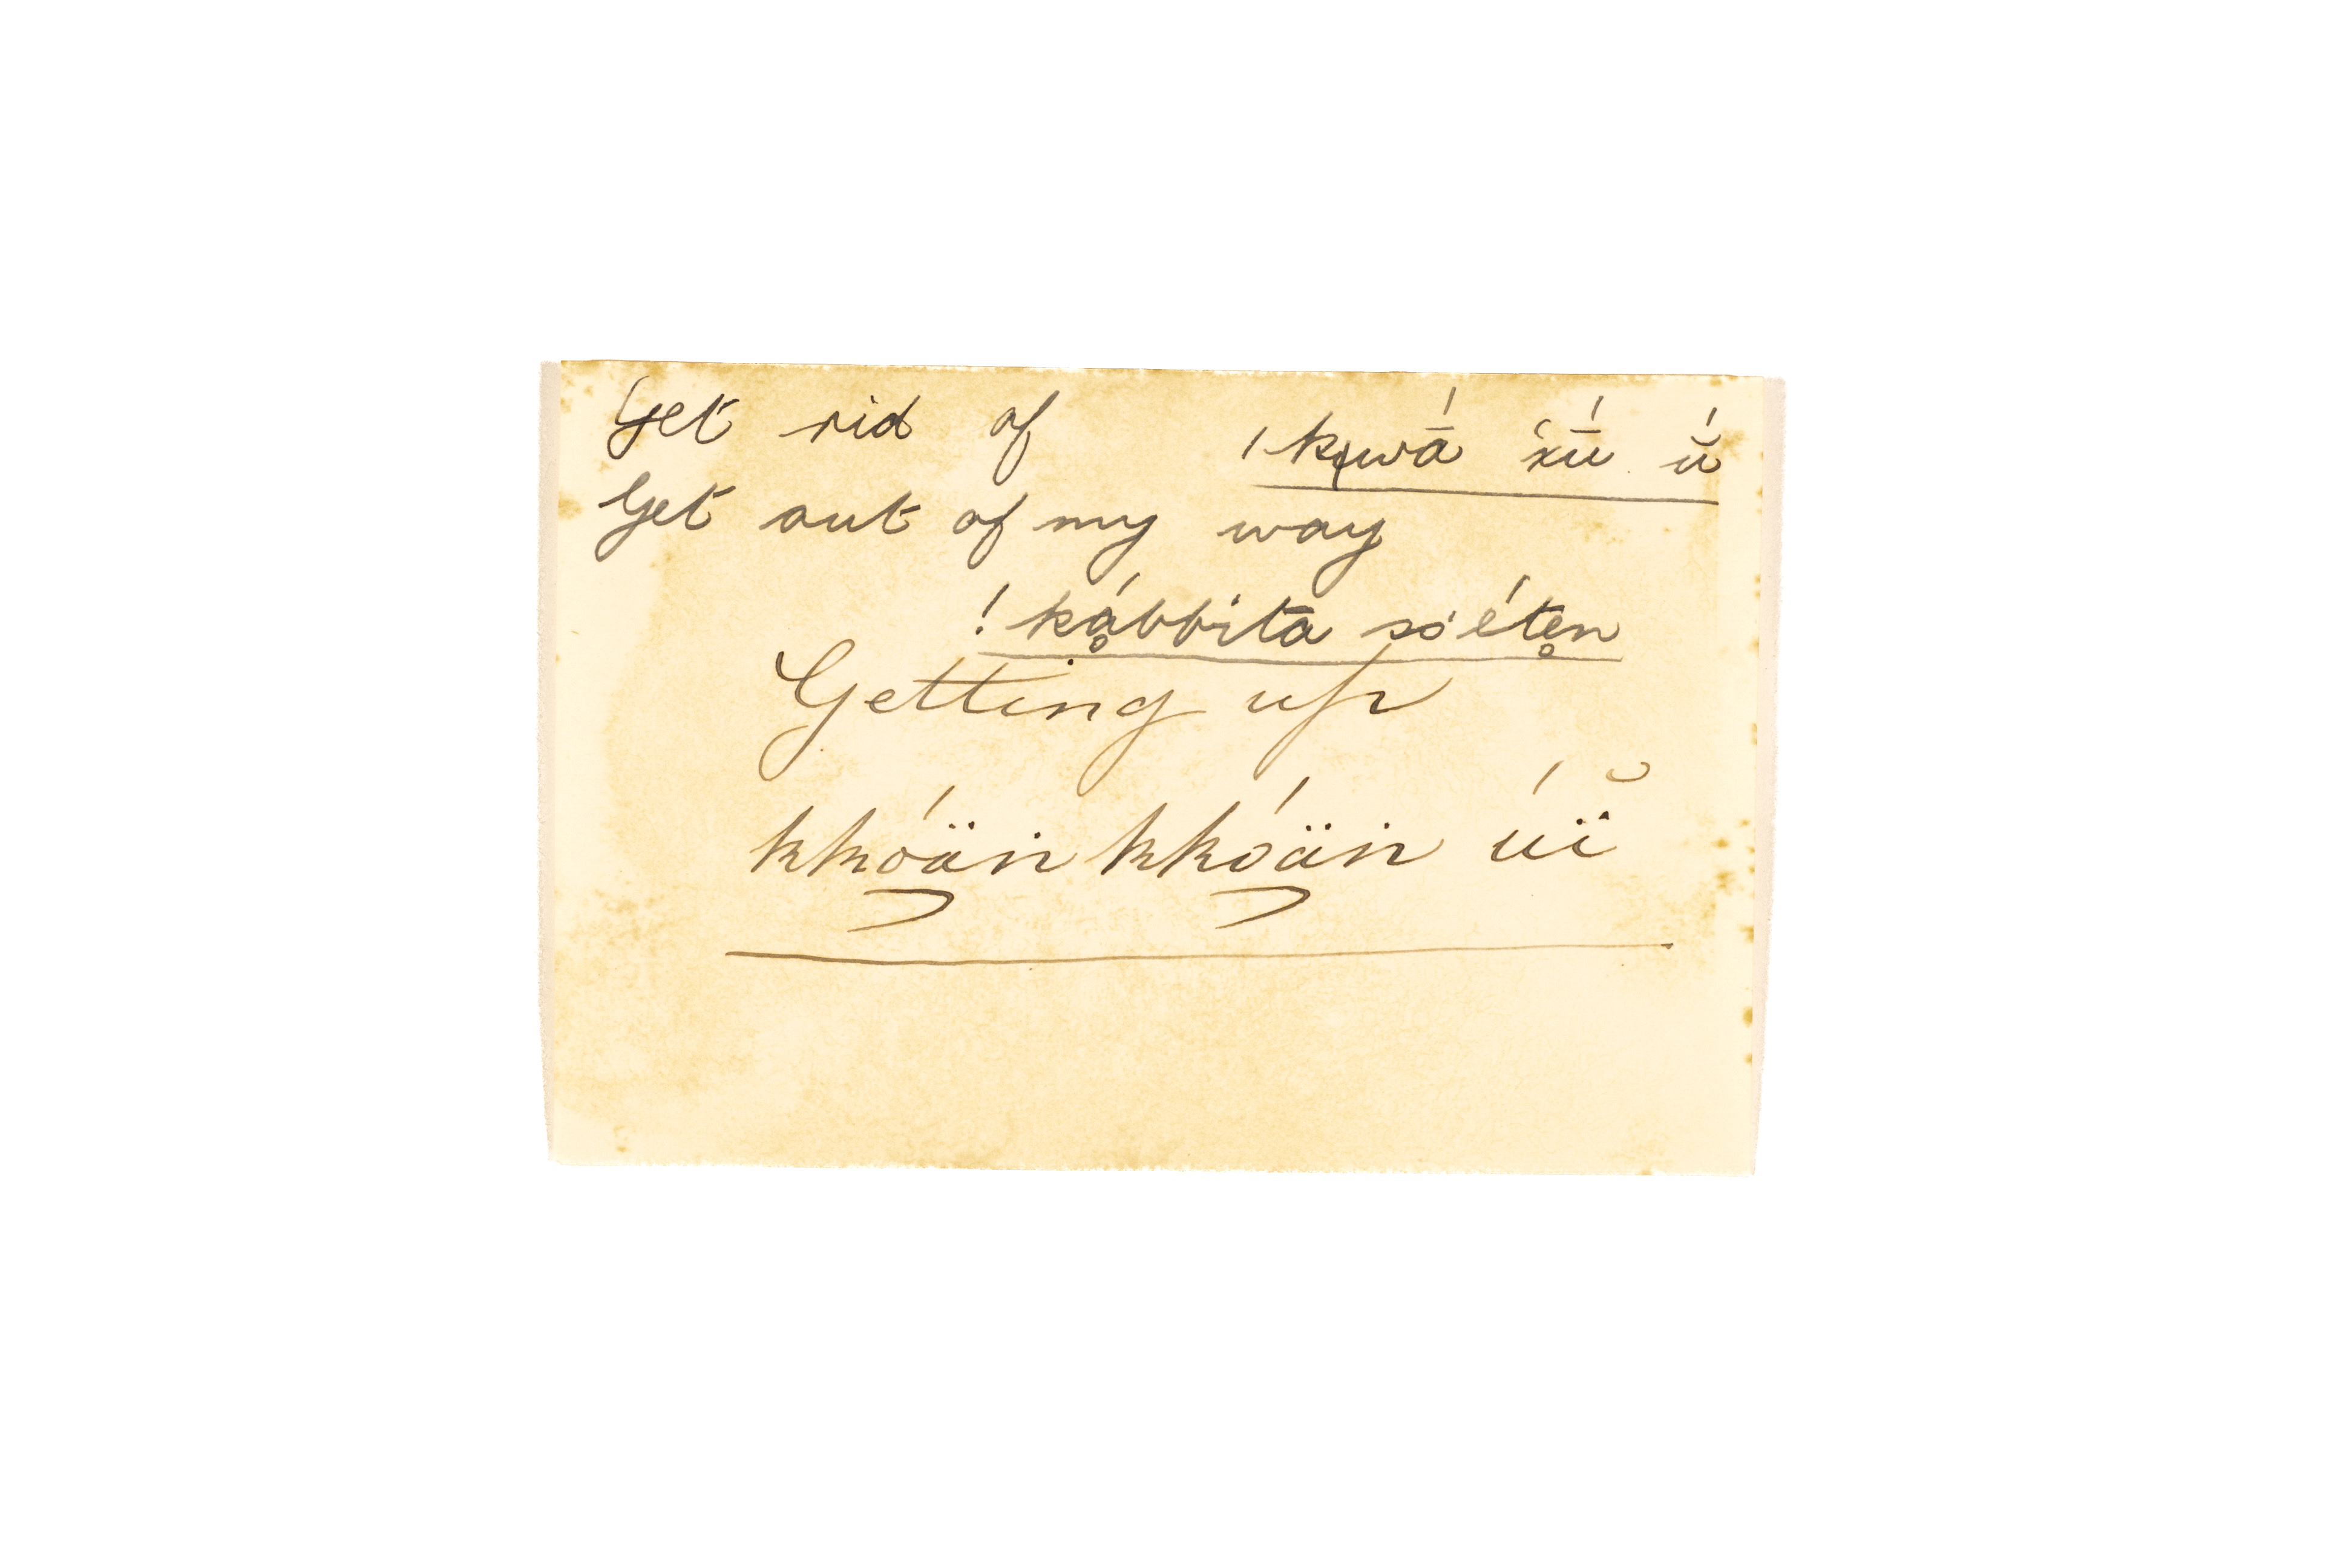 Get rid of ǀkwā́ x̔ū́ ŭ́
Get out of my way
! kạ́bbitā só éten̥
Getting up
kkóän kkóän úï̆